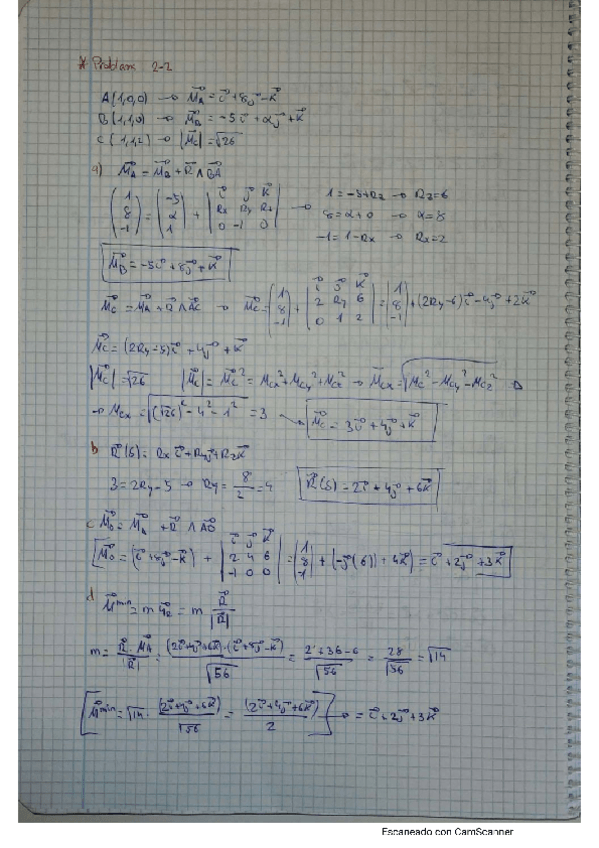 * Problem 2-2
A(1,0,0) → M⃗A = i⃗ + 8j⃗ - k⃗
B(1,1,0) → M⃗B = -5i⃗ + αj⃗ + k⃗
C(1,1,2) → |M⃗c| = √26
a) M⃗A = M⃗B + R⃗ ∧ BA
(1 8 -1) = (-5 α 1) + | i⃗ j⃗ k⃗ Rx Ry Rz 0 -1 0 | → 1 = -5+Rz → Rz=6
8 = α+0 → α=8
-1 = 1-Rx → Rx=2
M⃗B = -5i⃗ + 8j⃗ + k⃗
M⃗c = M⃗A + R⃗ ∧ AC → M⃗c = (1 8 -1) + | i⃗ j⃗ k⃗ 2 Ry 6 0 1 2 | = (1 8 -1) + (2Ry-6)i⃗ - 4j⃗ + 2k⃗
M⃗c = (2Ry-5)i⃗ + 4j⃗ + k⃗
|M⃗c| = √26 |M⃗c| = M⃗c² = Mcx² + Mcy² + Mcz² → M⃗cx = √Mc² - Mcy² - Mcz²
→ Mcx = √(√26)² - 4² - 1² = 3 → M⃗c = 3i⃗ + 4j⃗ + k⃗
b R⃗(S) = Rx i⃗ + Ry j⃗ + Rz k⃗
3 = 2Ry - 5 → Ry = 8/2 = 4 R⃗(S) = 2i⃗ + 4j⃗ + 6k⃗
c M⃗o = M⃗A + R⃗ ∧ AO
[M⃗o = (i⃗ + 8j⃗ - k⃗) + | i⃗ j⃗ k⃗ 2 4 6 -1 0 0 | = (1 8 -1) + (-j⃗(6)) + 4k⃗) = i⃗ + 2j⃗ + 3k⃗]
d
M⃗min = m u⃗R = m R⃗/|R⃗|
m = R⃗ · M⃗A/|R⃗| = (2i⃗+4j⃗+6k⃗)·(i⃗+8j⃗-k⃗)/√56 = 2+36-6/√56 = 28/√56 = √14
[M⃗min = √14 · (2i⃗+4j⃗+6k⃗)/√56 = (2i⃗+4j⃗+6k⃗)/2] → = i⃗+2j⃗+3k⃗
Escaneado con CamScanner